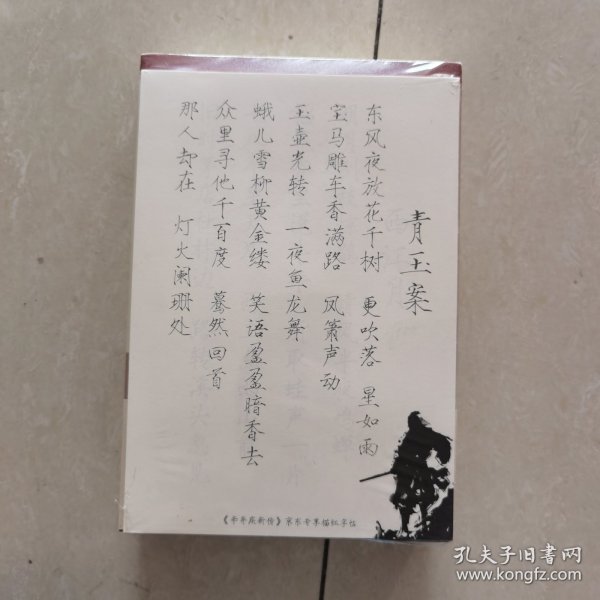 青玉案
东风夜放花千树 更吹落 星如雨
宝马雕车香满路 风箫声动
玉壶光转 一夜鱼龙舞
蛾儿雪柳黄金缕 笑语盈盈暗香去
众里寻他千百度 蓦然回首
那人却在 灯火阑珊处
新传》京东专享描红字帖
孔夫子旧书网
www.kongfz.com